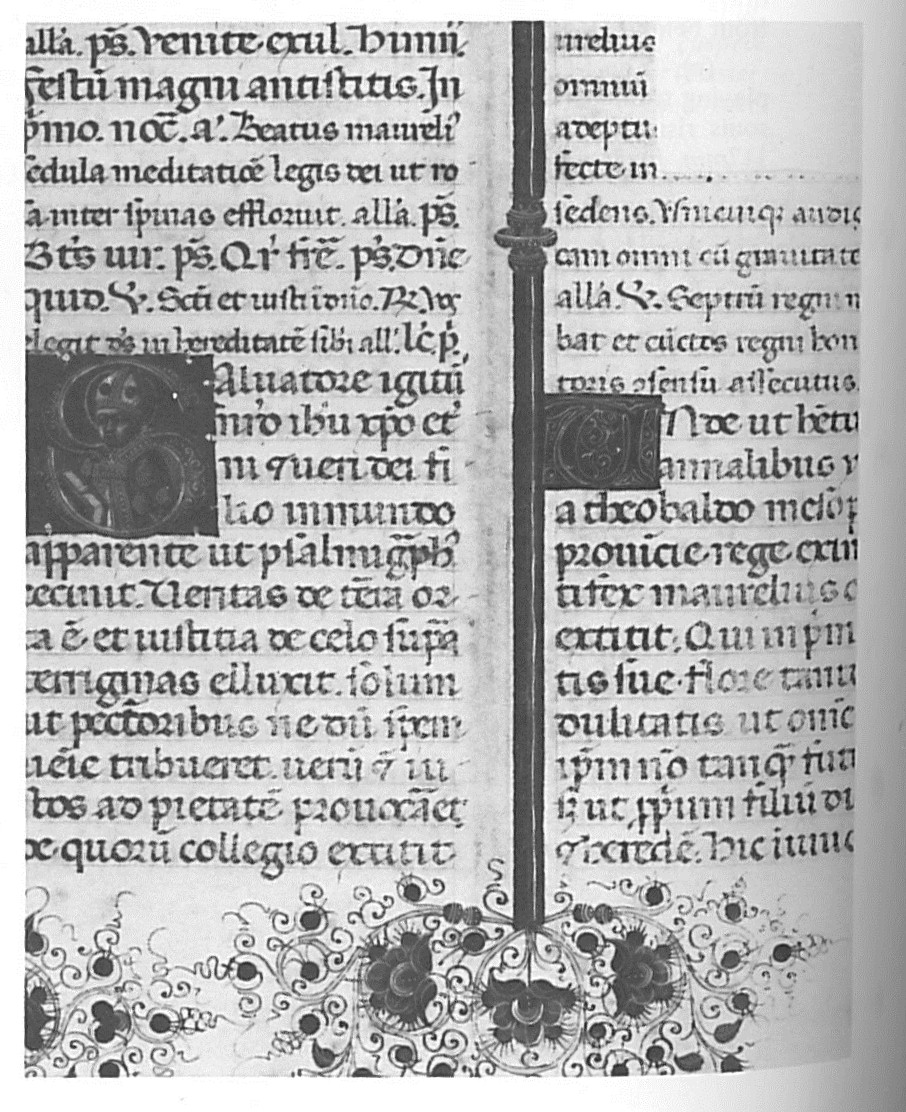 all'a. ps̄. Venite exul. Himn̄.
Festū magni antistitis. In
p̄mo. noc̄. a'. Beatus maureli'
sedula meditatiōe legis dei ut ro
sa inter spinas effloruit. all'a. ps̄.
Bt̄s uir. ps̄. Qr̄ frē. ps̄. Dn̄e
quid. ℣. Sc̄ti et iusti ī dn̄o. ℟. vos
elegit ds̄ in hereditatē sibi all'. lc̄. p̄.
Saluatore igitū
nr̄o ihū xp̄o et
ni ⁊ ueri dei fi
lio in mundo
apparente ut psalmigp̄h'
cecinit. Ueritas de tērra or
ta ē et iustitia de celo sup̄a
terriginas elluxit. solum
ut pectoribus ne dū spem
ueīe tribueret. uerū ⁊ iu
stos ad pietatē prouocāet
de quorū collegio extitit
urelius
omniū
adeptu
fecte in
sedens. Usuncuiq; audiē
cam omni cū grauitate
all'a. ℣. Septrū regni
bat et cūctos regni hon
toris ɔsensu assecutus.
Unde ut hētu
annalibus
a theobaldo mesop
prouīcie rege exim
tifex maurelius
extitit. Qui in p̄m
tis sue flore tant
dulitatis ut om̄e
ip̄m nō tanq̄
s; ut pp̄ium filiū di
⁊ crederē. Hic iunio